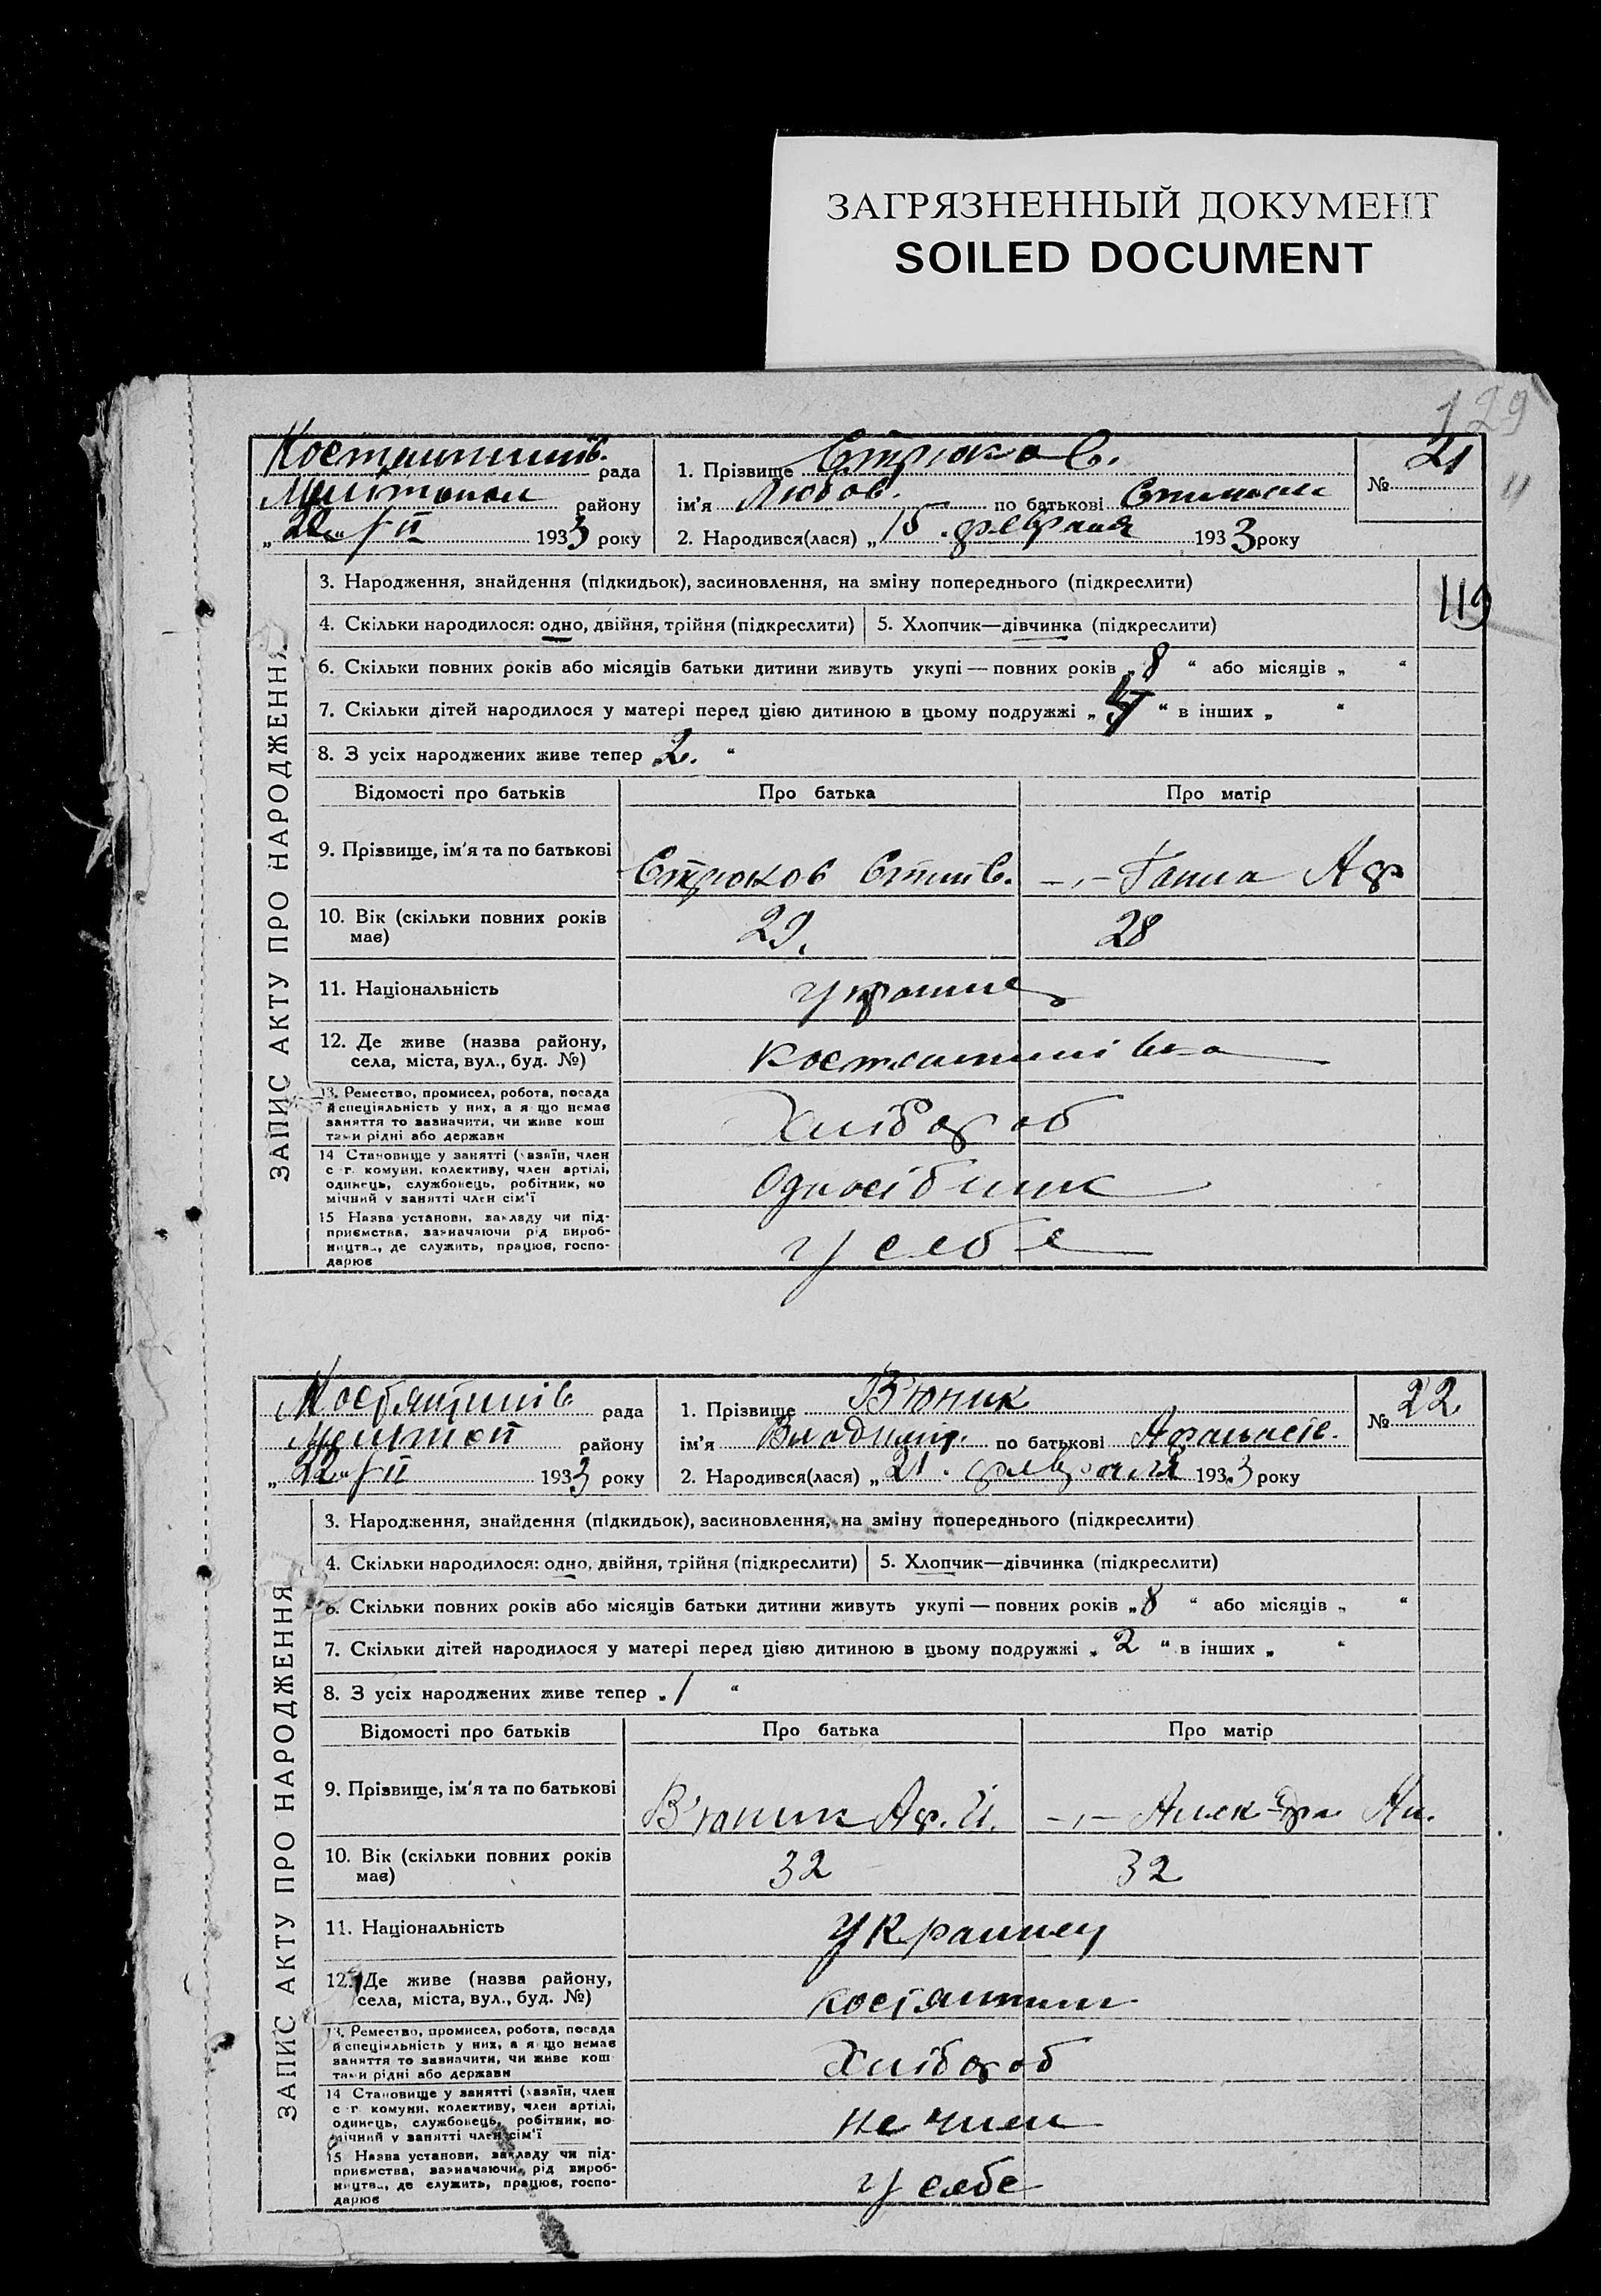 ЗАГРЯЗНЕННЫЙ ДОКУМЕНТ
SOILED DOCUMENT
129
Костантинів. рада
Мелітопол району
„22“ / II 1933 року
1. Прізвище Стрюков.
ім'я Любов. по батькові
2. Народився(лася) „15. февраля 1933 року
№ 21
ЗАПИС АКТУ ПРО НАРОДЖЕННЯ
3. Народження, знайдення (підкидьок), засиновлення, на зміну попереднього (підкреслити)
119
4. Скільки народилося: одно, двійня, трійня (підкреслити) 5. Хлопчик—дівчинка (підкреслити)
6. Скільки повних років або місяців батьки дитини живуть укупі — повних років „8“ або місяців „ “
7. Скільки дітей народилося у матері перед цією дитиною в цьому подружжі „ “ в інших „ “
8. З усіх народжених живе тепер „2.“
Відомості про батьків Про батька Про матір
9. Прізвище, ім'я та по батькові Стрюков -,,- Ганна Аф
10. Вік (скільки повних років 29. 28
має)
11. Національність украине
12. Де живе (назва району, Костантинівка
села, міста, вул., буд. №)
13. Ремество, промисел, робота, посада
й спеціяльність у них, а якщо немає Хлібороб
заняття то зазначити, чи живе кош
тами рідні або держави
14 Становище у занятті (хазяїн, член
с.-г. комуни, колективу, член артілі, Односібник
одинець, службовець, робітник, по
мічний у занятті член сім'ї
15 Назва установи, закладу чи під-
приємства, зазначаючи рід вироб- у себе
ництва, де служить, працює, госпо-
дарює
Костянтинів рада
Мелітоп району
„22“ / II 1933 року
1. Прізвище В'юник
ім'я Владимір. по батькові Афанасіє.
2. Народився(лася) „21. февраля 1933 року
№ 22
ЗАПИС АКТУ ПРО НАРОДЖЕННЯ
3. Народження, знайдення (підкидьок), засиновлення, на зміну попереднього (підкреслити)
4. Скільки народилося: одно, двійня, трійня (підкреслити) 5. Хлопчик—дівчинка (підкреслити)
6. Скільки повних років або місяців батьки дитини живуть укупі — повних років „8“ або місяців „ “
7. Скільки дітей народилося у матері перед цією дитиною в цьому подружжі „2“ в інших „ “
8. З усіх народжених живе тепер „1“
Відомості про батьків Про батька Про матір
9. Прізвище, ім'я та по батькові В'юник Аф. И. -,,- Алек-дра Ан.
10. Вік (скільки повних років 32 32
має)
11. Національність Украинец
12. Де живе (назва району, Костянтин
села, міста, вул., буд. №)
13. Ремество, промисел, робота, посада
й спеціяльність у них, а якщо немає Хлібороб
заняття то зазначити, чи живе кош
тами рідні або держави
14 Становище у занятті (хазяїн, член
с.-г. комуни, колективу, член артілі, не член
одинець, службовець, робітник, по
мічний у занятті член сім'ї
15 Назва установи, закладу чи під-
приємства, зазначаючи рід вироб- у себе
ництва, де служить, працює, госпо-
дарює